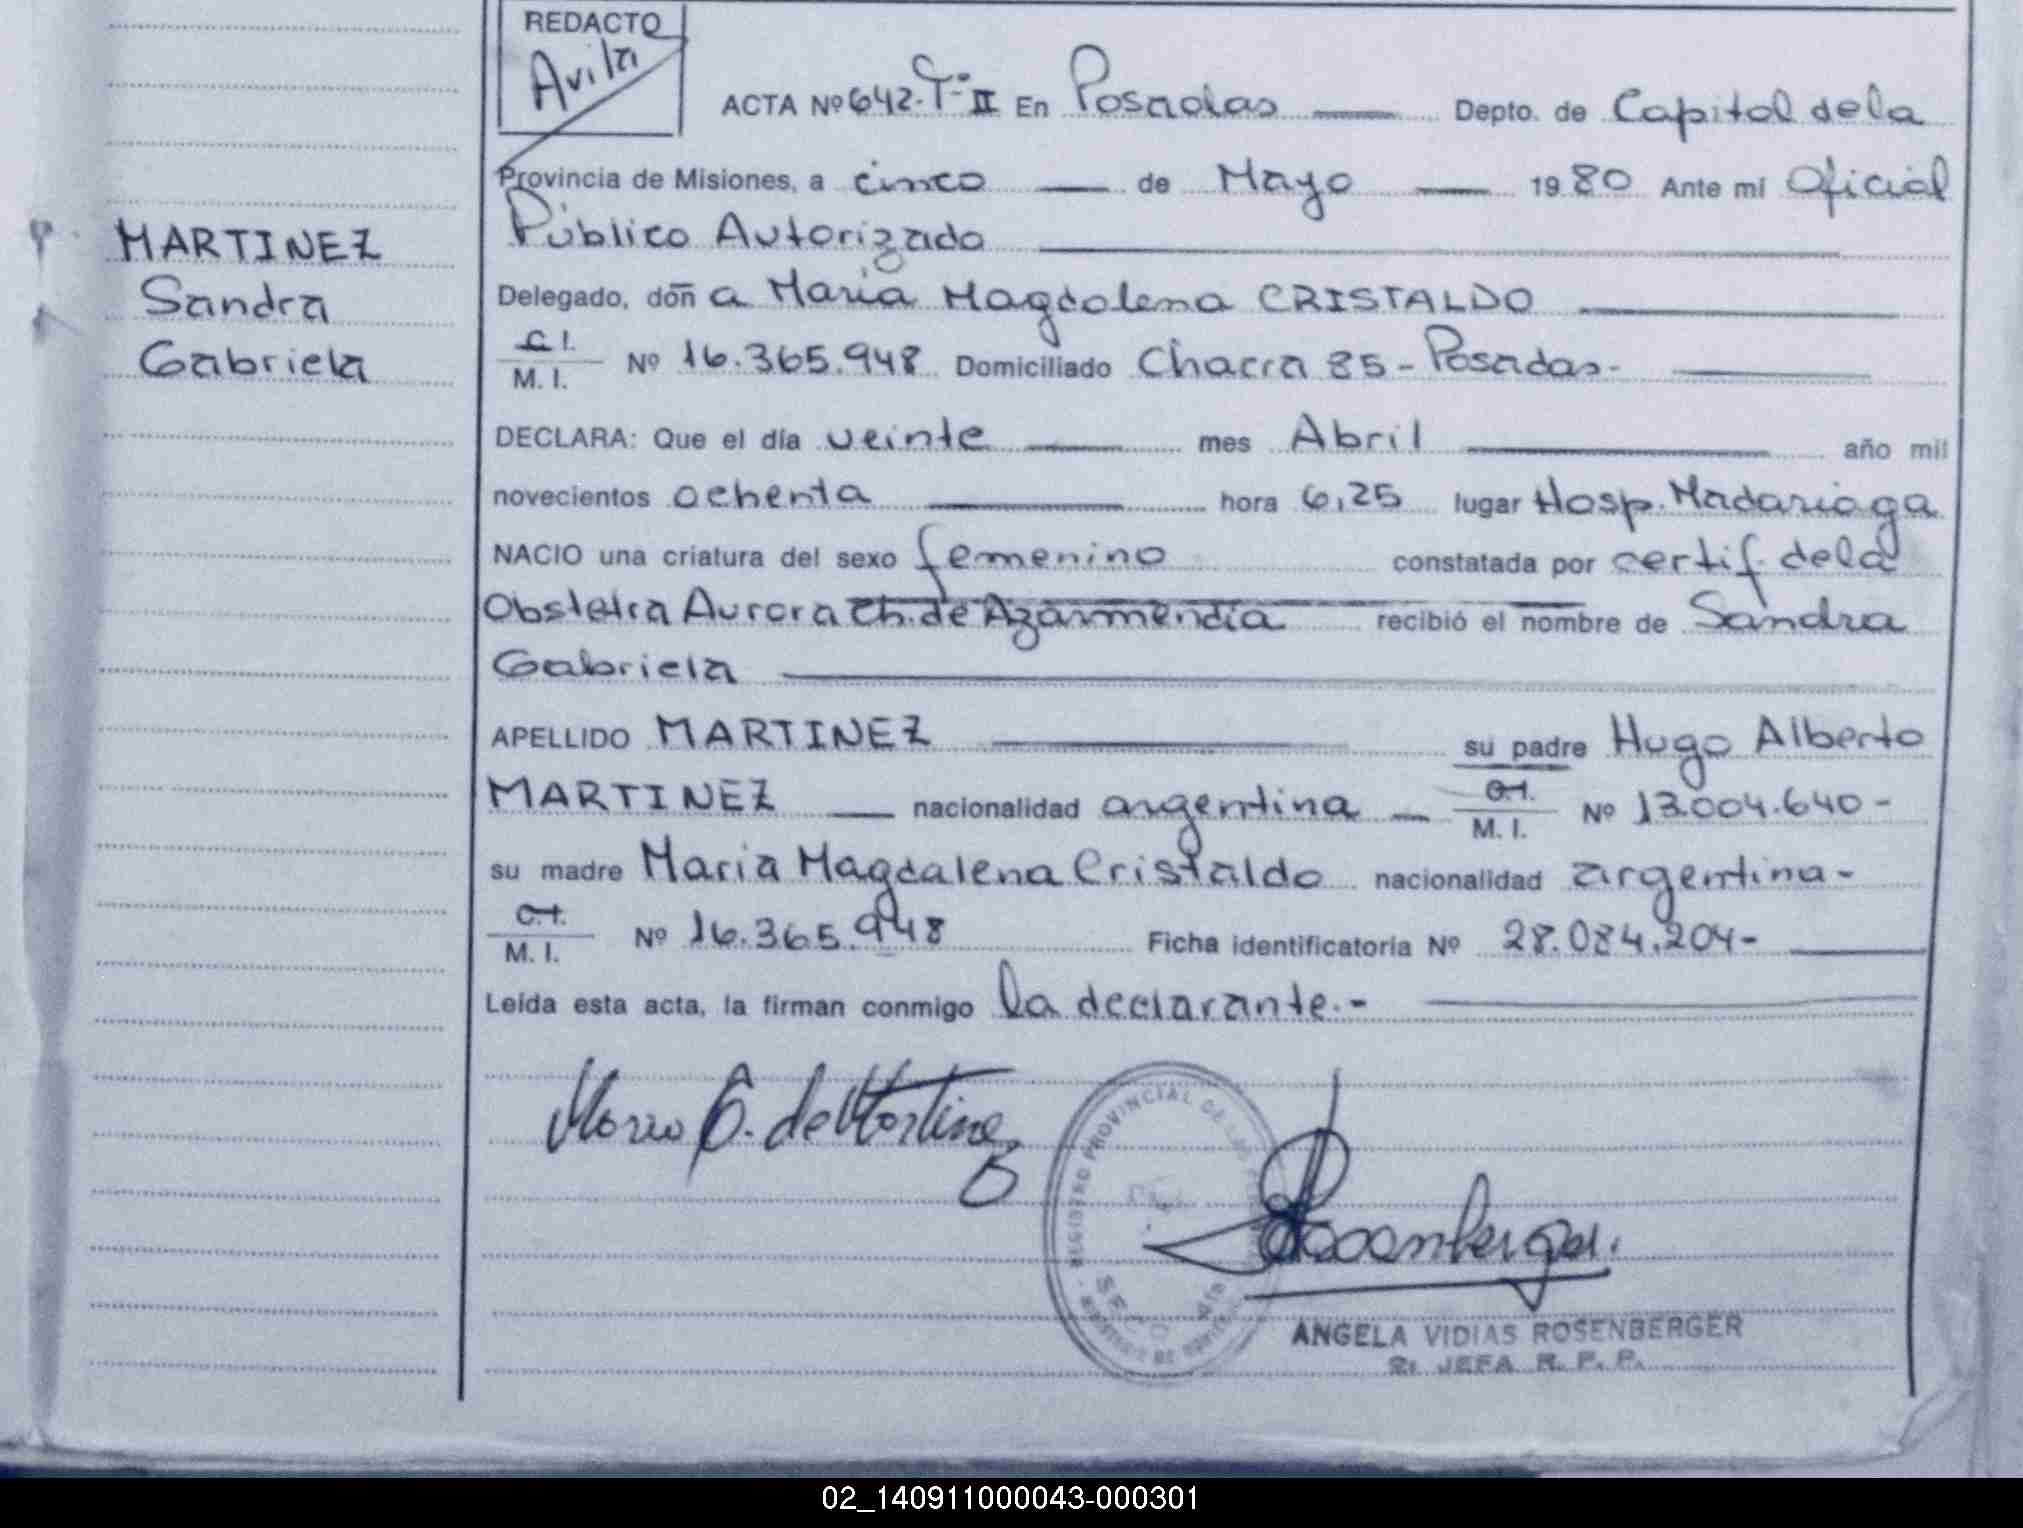 REDACTO
Avila
ACTA Nº 642. Tº II En Posadas Depto. de Capital de la
Provincia de Misiones, a cinco de Mayo 1980 Ante mí Oficial
Público Autorizado
MARTINEZ
Sandra
Gabriela
Delegado, doña María Magdalena CRISTALDO
C.I.
M. I. Nº 16.365.948 Domiciliado Chacra 85 - Posadas -
DECLARA: Que el día veinte mes Abril año mil
novecientos ochenta hora 6,25 lugar Hosp. Madariaga
NACIO una criatura del sexo femenino constatada por certif. de la
Obstetra Aurora Ch. de Azarmendia recibió el nombre de Sandra
Gabriela
APELLIDO MARTINEZ su padre Hugo Alberto
MARTINEZ nacionalidad argentina - C.I.
M. I. Nº 13.004.640 -
su madre Maria Magdalena Cristaldo nacionalidad argentina -
C.I.
M. I. Nº 16.365.948 Ficha identificatoria Nº 28.084.204 -
Leída esta acta, la firman conmigo la declarante. -
Maria C. de Martinez
REGISTRO PROVINCIAL DE LAS
Rosenberger.
ANGELA VIDIAS ROSENBERGER
2ª JEFA R. P. P.
02_140911000043-000301